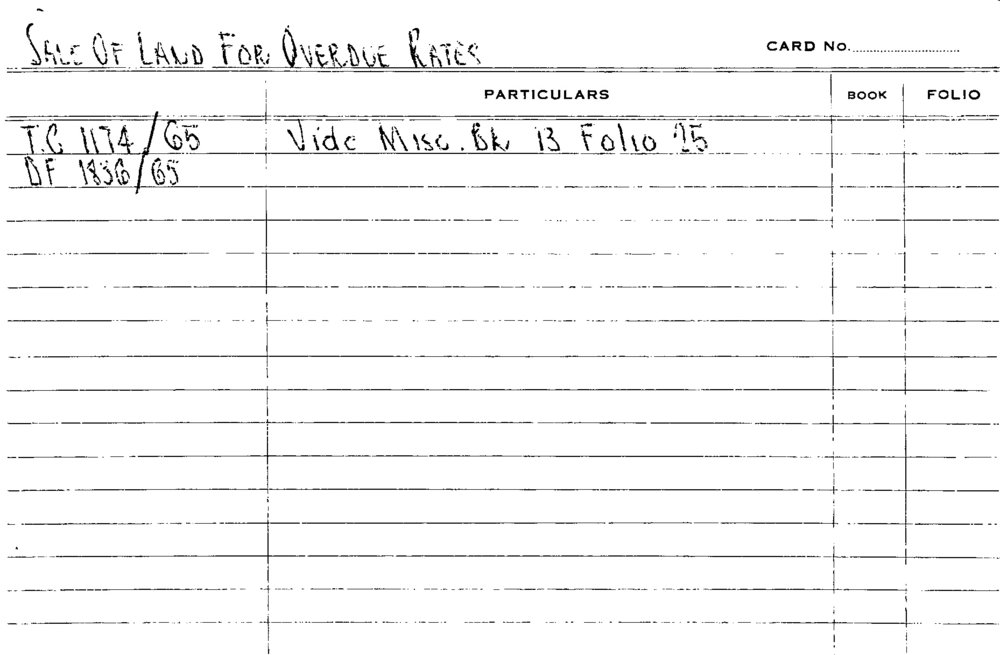 SALE OF LAND FOR OVERDUE RATES
CARD No.
PARTICULARS BOOK FOLIO
T.C 1174/65 Vide Misc. Bk 13 Folio 25
DF 1836/65